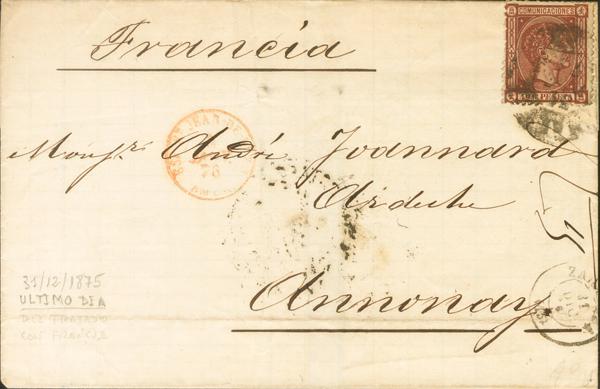 Francia
COMUNICACIONES
UNA PESETA
Monsr. André Joannard
76
Ardeche
15
Annonay
31/12/1875
ULTIMO DIA
DEL TRATADO
CON FRANCIA
ZAR
31